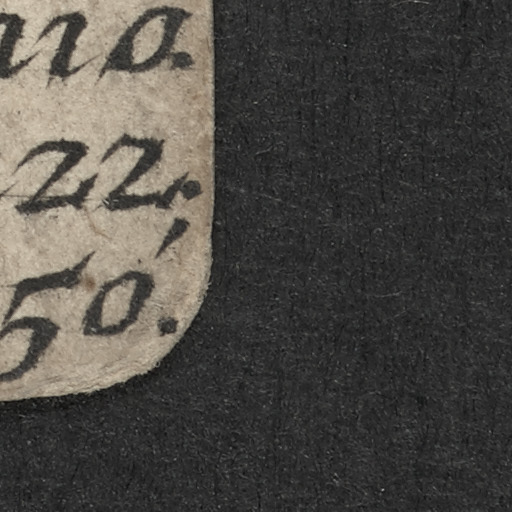 no.
22.
50.